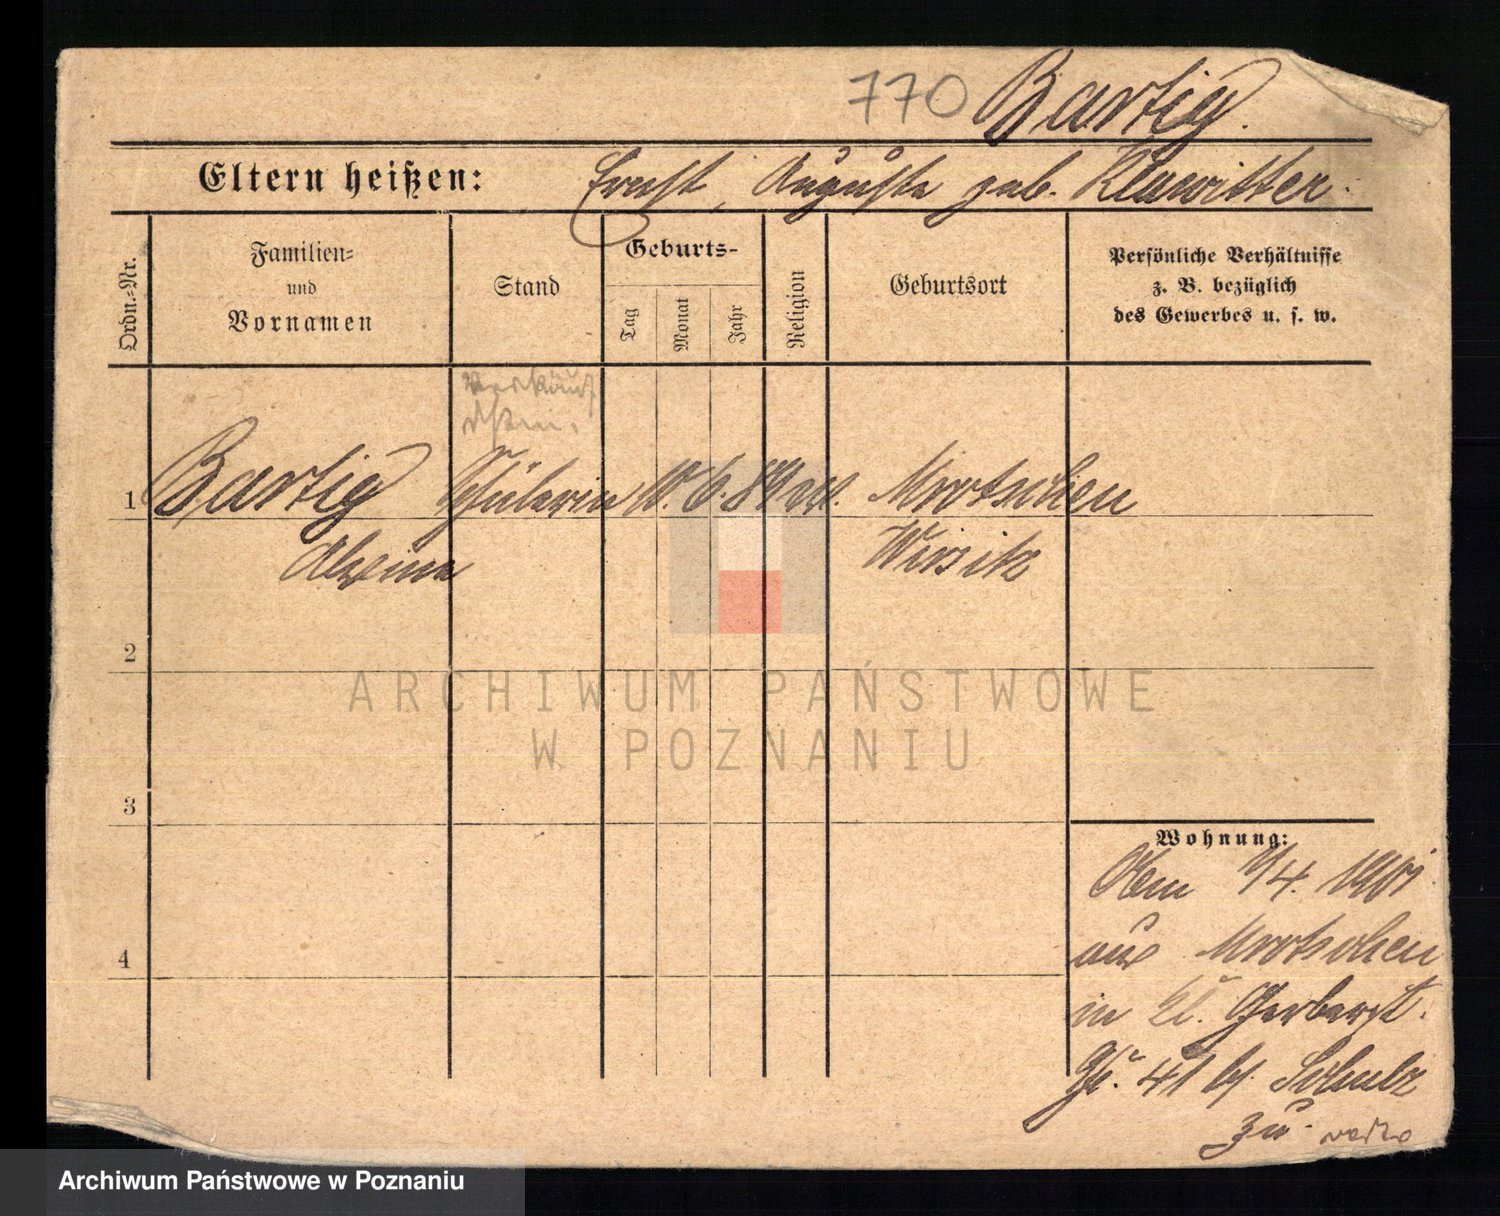 770 Bartig.
Eltern heißen: Ernst, Auguste geb. Klawitter.
Ordn.-Nr.
Familien-
und
Vornamen
Stand
Geburts-
Tag
Monat
Jahr
Religion
Geburtsort
Persönliche Verhältnisse
z. B. bezüglich
des Gewerbes u. s. w.
1 Bartig Schülerin 10. 6. 84 ev. Mrotschen
Wirsitz
2
ARCHIWUM PAŃSTWOWE
W POZNANIU
3
4
Wohnung:
1/4. 1901
aus Mrotschen
in kl. Gerberst.
41 b/ Schulz
zu.
Archiwum Państwowe w Poznaniu